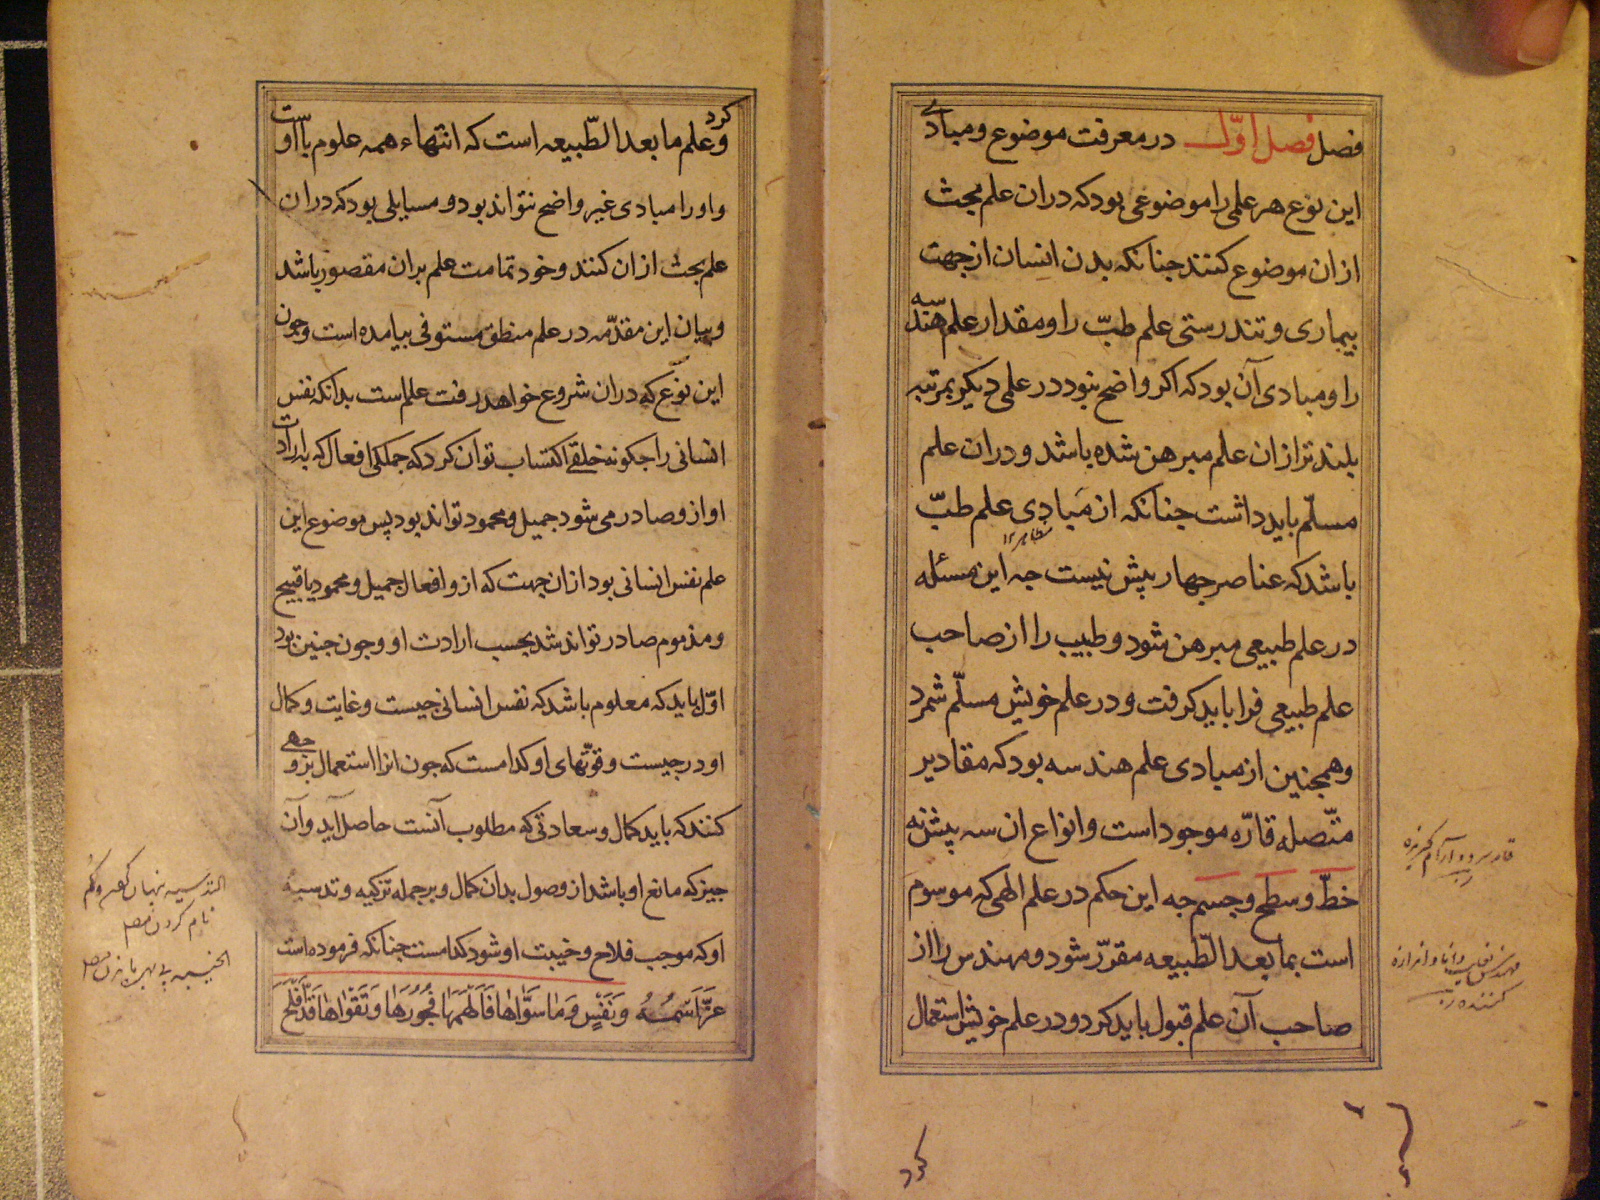 فصل فصل اوّل در معرفت موضوع و مبادی
این نوع هر علمی را موضوعی بود که دران علم بحث
ازان موضوع کنند جنانکه بدن انسان از جهت
بیماری و تندرستی علم طبّ را و مقدار علم هندسه
را و مبادی آن بود که اکر واضح نبود در علمی دیکر بمرتبه
بلند تر ازان علم مبرهن شده باشد و دران علم
مسلّم باید داشت جنانکه از مَبادِی علم طبّ
باشد که عناصر جهار بیش نیست جه این مسئله
در علم طبیعی مبرهن شود و طبیب را از صاحب
علم طبیعی فرا باید کرفت و در علم خویش مسلّم شمرد
و همجنین از مبادی علم هندسه بود که مقادیر
متّصله قارّه موجود است و انواع ان سه بیش نه
خطّ و سطح و جسم جه این حکم در علم الهی که موسوم
است بما بعد الطّبیعه مقرّر شود و مهندس را از
صاحب آن علم قبول باید کرد و در علم خویش استعمال
کرد
کرد
و علم ما بعد الطّبیعه است که انتهاء همه علوم با اوست
و او را مبادی غیر واضح نتواند بود و مسایلی بود که دران
علم بحث ازان کنند و خود تمامت علم بران مقصور باشد
و بیان این مقدّمه در علم منطق مستوفی بیامده است و جون
این نوع که دران شروع خواهد رفت علم است بدانکه نفس
انسانی را جکونه خلقی اکتساب توان کرد که جملکی افعال که بارادت
او ازو صادر می شود جمیل و محمود تواند بود پس موضوع این
علم نفس انسانی بود ازان جهت که ازو افعال جمیل و محمود یا قبیح
و مذموم صادر تواند شد بحسب ارادت او و جون جنین بود
اوّل باید که معلوم باشد که نفس انسانی جیست و غایت و کمال
او در جیست و قوّتهای او کدامست که جون انرا استعمال بر وجهی
کنند که باید کمال و سعادتی که مطلوب آنست حاصل آید و آن
جیز که مانع او باشد از وصول بدان کمال و بر جمله تزکیه و تدسیه
او که موجب فلاح و خیبت او شود کدامست جنانکه فرموده است
عزّ اسمه وَنَفْسٍ وَمَا سَوَّاهَا فَأَلْهَمَهَا فُجُورَهَا وَتَقْوَاهَا قَدْ أَفْلَحَ